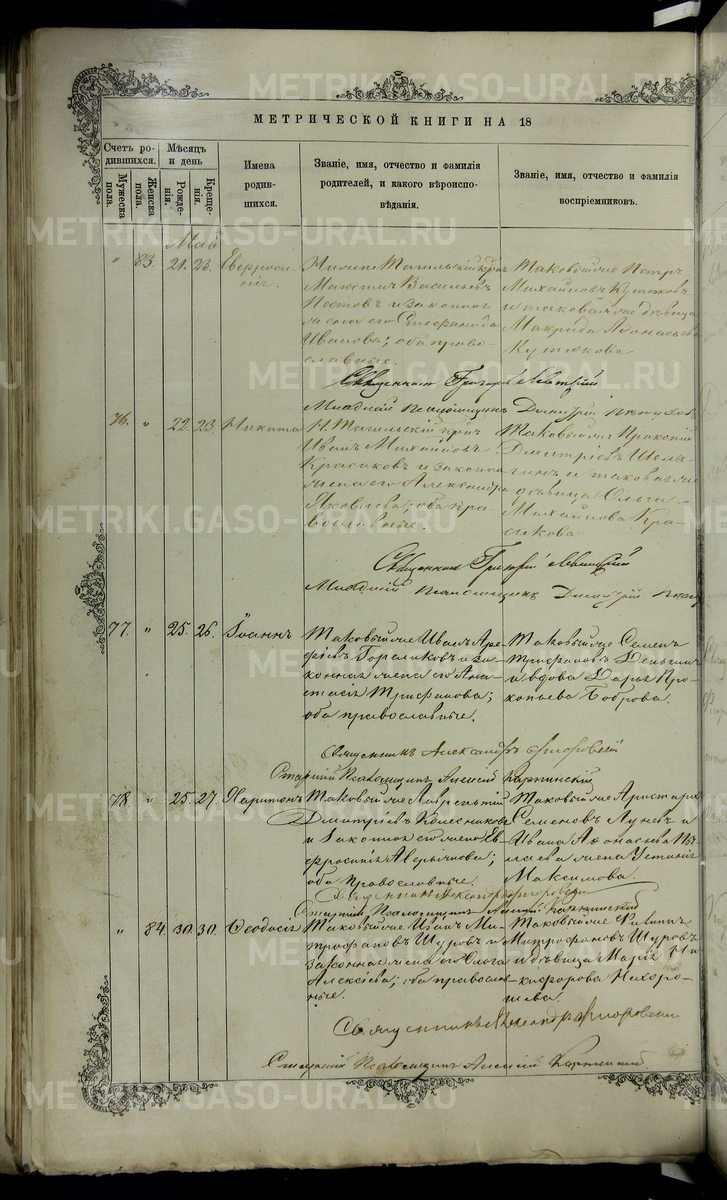 МЕТРИЧЕСКОЙ КНИГИ НА 18
Счетъ родившихся.
Мужеска пола.
Женска пола.
Мѣсяцъ и день
Рожденія.
Крещенія.
Имена родившихся.
Званіе, имя, отчество и фамилія родителей, и какого вѣроисповѣданія.
Званіе, имя, отчество и фамилія воспріемниковъ.
Май
" 83 21. 23.
Василъевъ
и законная
жена его
Иванова; оба право-
славные.
Таковый же Петръ
Михайловъ
и таковая же дѣвица
Священникъ Григорій Левитскій
Младшій Псаломщикъ Димитрій
76. " 22. 23. Никита
Н. Тагильскій кр.
Иванъ Михайловъ
Красиковъ и законная
жена его Александра
Яковлева; оба пра-
вославные.
Таковый же Прокопій
Дмитріевъ
и таковая же
дѣвица Ольга
Михайлова Кра-
сикова
Священникъ Григорій Левитскій
Младшій Псаломщикъ Димитрій
77. " 25. 26. Іоаннъ
Таковый же Иванъ Аре-
фіевъ Гореликовъ и за-
конная жена его Ана-
стасія Трифонова;
оба православные.
Таковый же Семенъ
Трифоновъ
и вдова Дарья Про-
копьева Боброва.
Священникъ Александръ Флоровскій
Старшій Псаломщикъ Алексій Карпинскій
78 " 25. 27. Харитонъ
Таковый же Лаврентій
Дмитріевъ Колесниковъ
и законная его жена Ев-
фросинія Аверьянова;
оба православные.
Таковый же Аристархъ
Семеновъ Луневъ и
Ивана Афанасьева
жена Устинія
Максимова.
Священникъ Александръ Флоровскій
Старшій Псаломщикъ Алексій Карпинскій
" 84. 30. 30. Ѳеодосія
Таковый же Иванъ Ми-
трофановъ Шуровъ и
законная жена его Ольга
Алексіева; оба православ-
ные.
Таковый же Филиппъ
Митрофановъ Шуровъ
и дѣвица Марія Ни-
кифорова Нехоро-
шева.
Священникъ Александръ Флоровскій
Старшій Псаломщикъ Алексій Карпинскій
METRIKI.GASO-URAL.RU